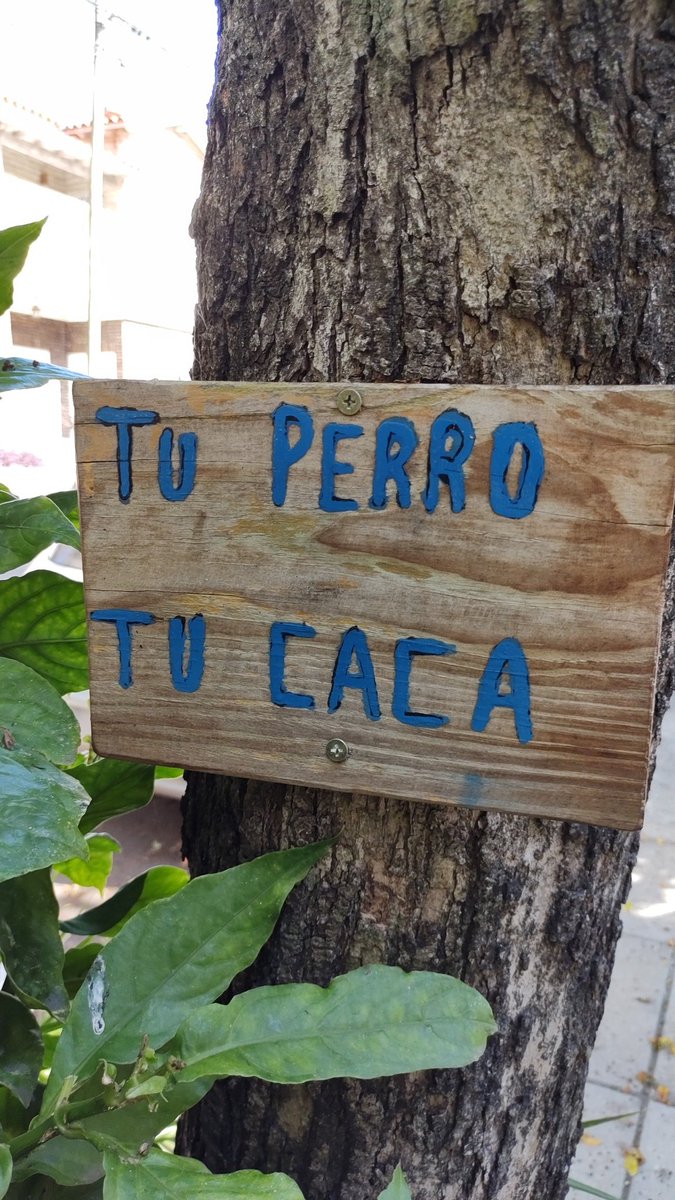 TU PERRO
TU CACA